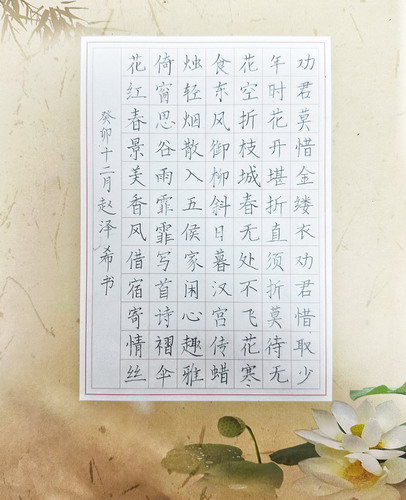 劝君莫惜金缕衣劝君惜取少
年时花开堪折直须折莫待无
花空折枝城春无处不飞花寒
食东风御柳斜日暮汉宫传蜡
烛轻烟散入五侯家闲心趣雅
倚窗思谷雨霏霏写首诗褶伞
花红春景美香风借宿寄情丝
癸卯十二月赵泽希书